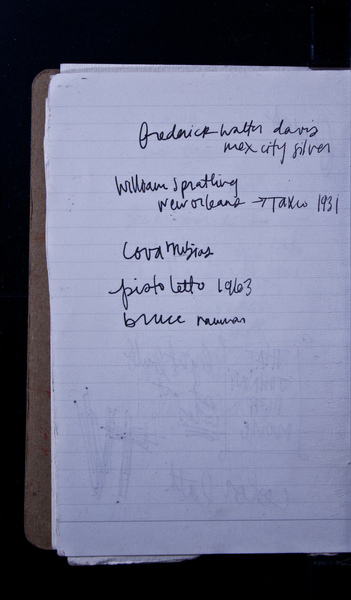 frederick walter davis
mex city silver
William Spratling
new orleans → Taxco 1931
Covarrubias
pistoletto 1963
bruce nauman